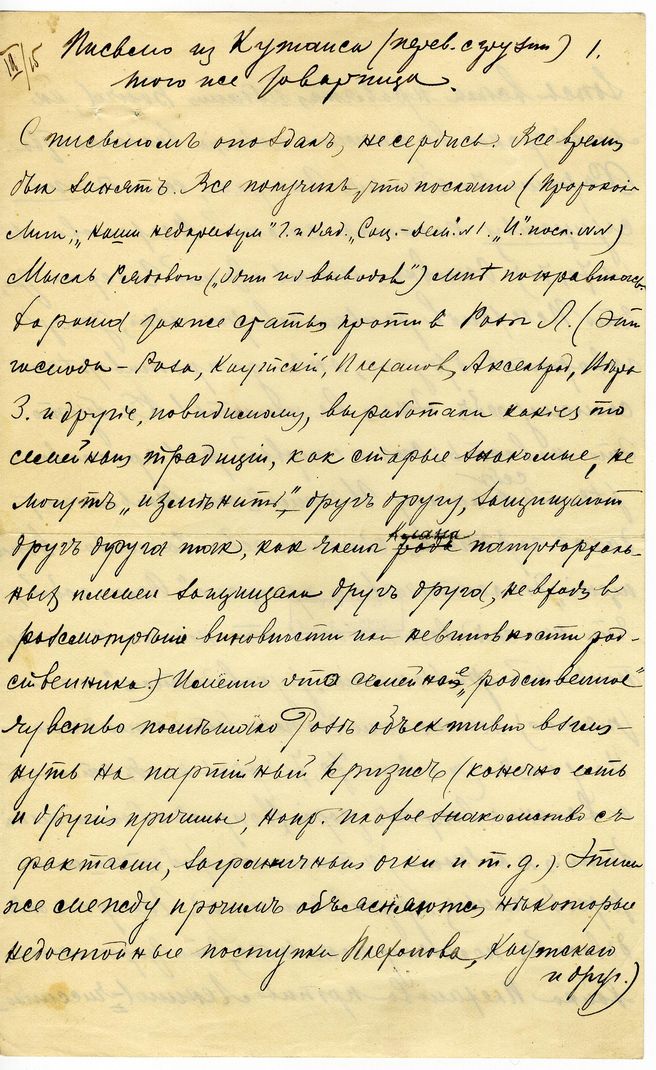 III/15
Письмо из Кутаиса (перев. с грузин) 1.
того же товарища.
С письмомъ опоздалъ, не сердись. Все время
был занятъ. Все получилъ, что послали (Протокол
Лиги; „Наши недоразум" Г. и Ряд. „Соц.-Дем." №1. „И". посл. №№)
Мысль Рядового („Один из выводов") мнѣ понравилась.
Хороша также статья против Розы Л. (Эти
господа – Роза, Каутскій, Плеханов, Аксельрод, Вера
З. и другіе, повидимому, выработали какіез то
семейныя традиціи, как старые знакомые, не
могутъ „измѣнить" другъ другу, защищают
другъ друга так, как члены клана рода патріархаль-
ныхъ племен защищали другъ друга, не входя в
разсмотрѣніе виновности или невиновности род-
ственника.) Именно это семейное „родственное"
чувство помѣшало Розѣ объективно взгля-
нуть на партійный кризисъ (конечно есть
и другія причины, напр. плохое знакомство съ
фактами, заграничныя очки и т. д.). Этим
же между прочимъ объясняются нѣкоторые
недостойные поступки Плеханова, Каутскаго
и друг.)